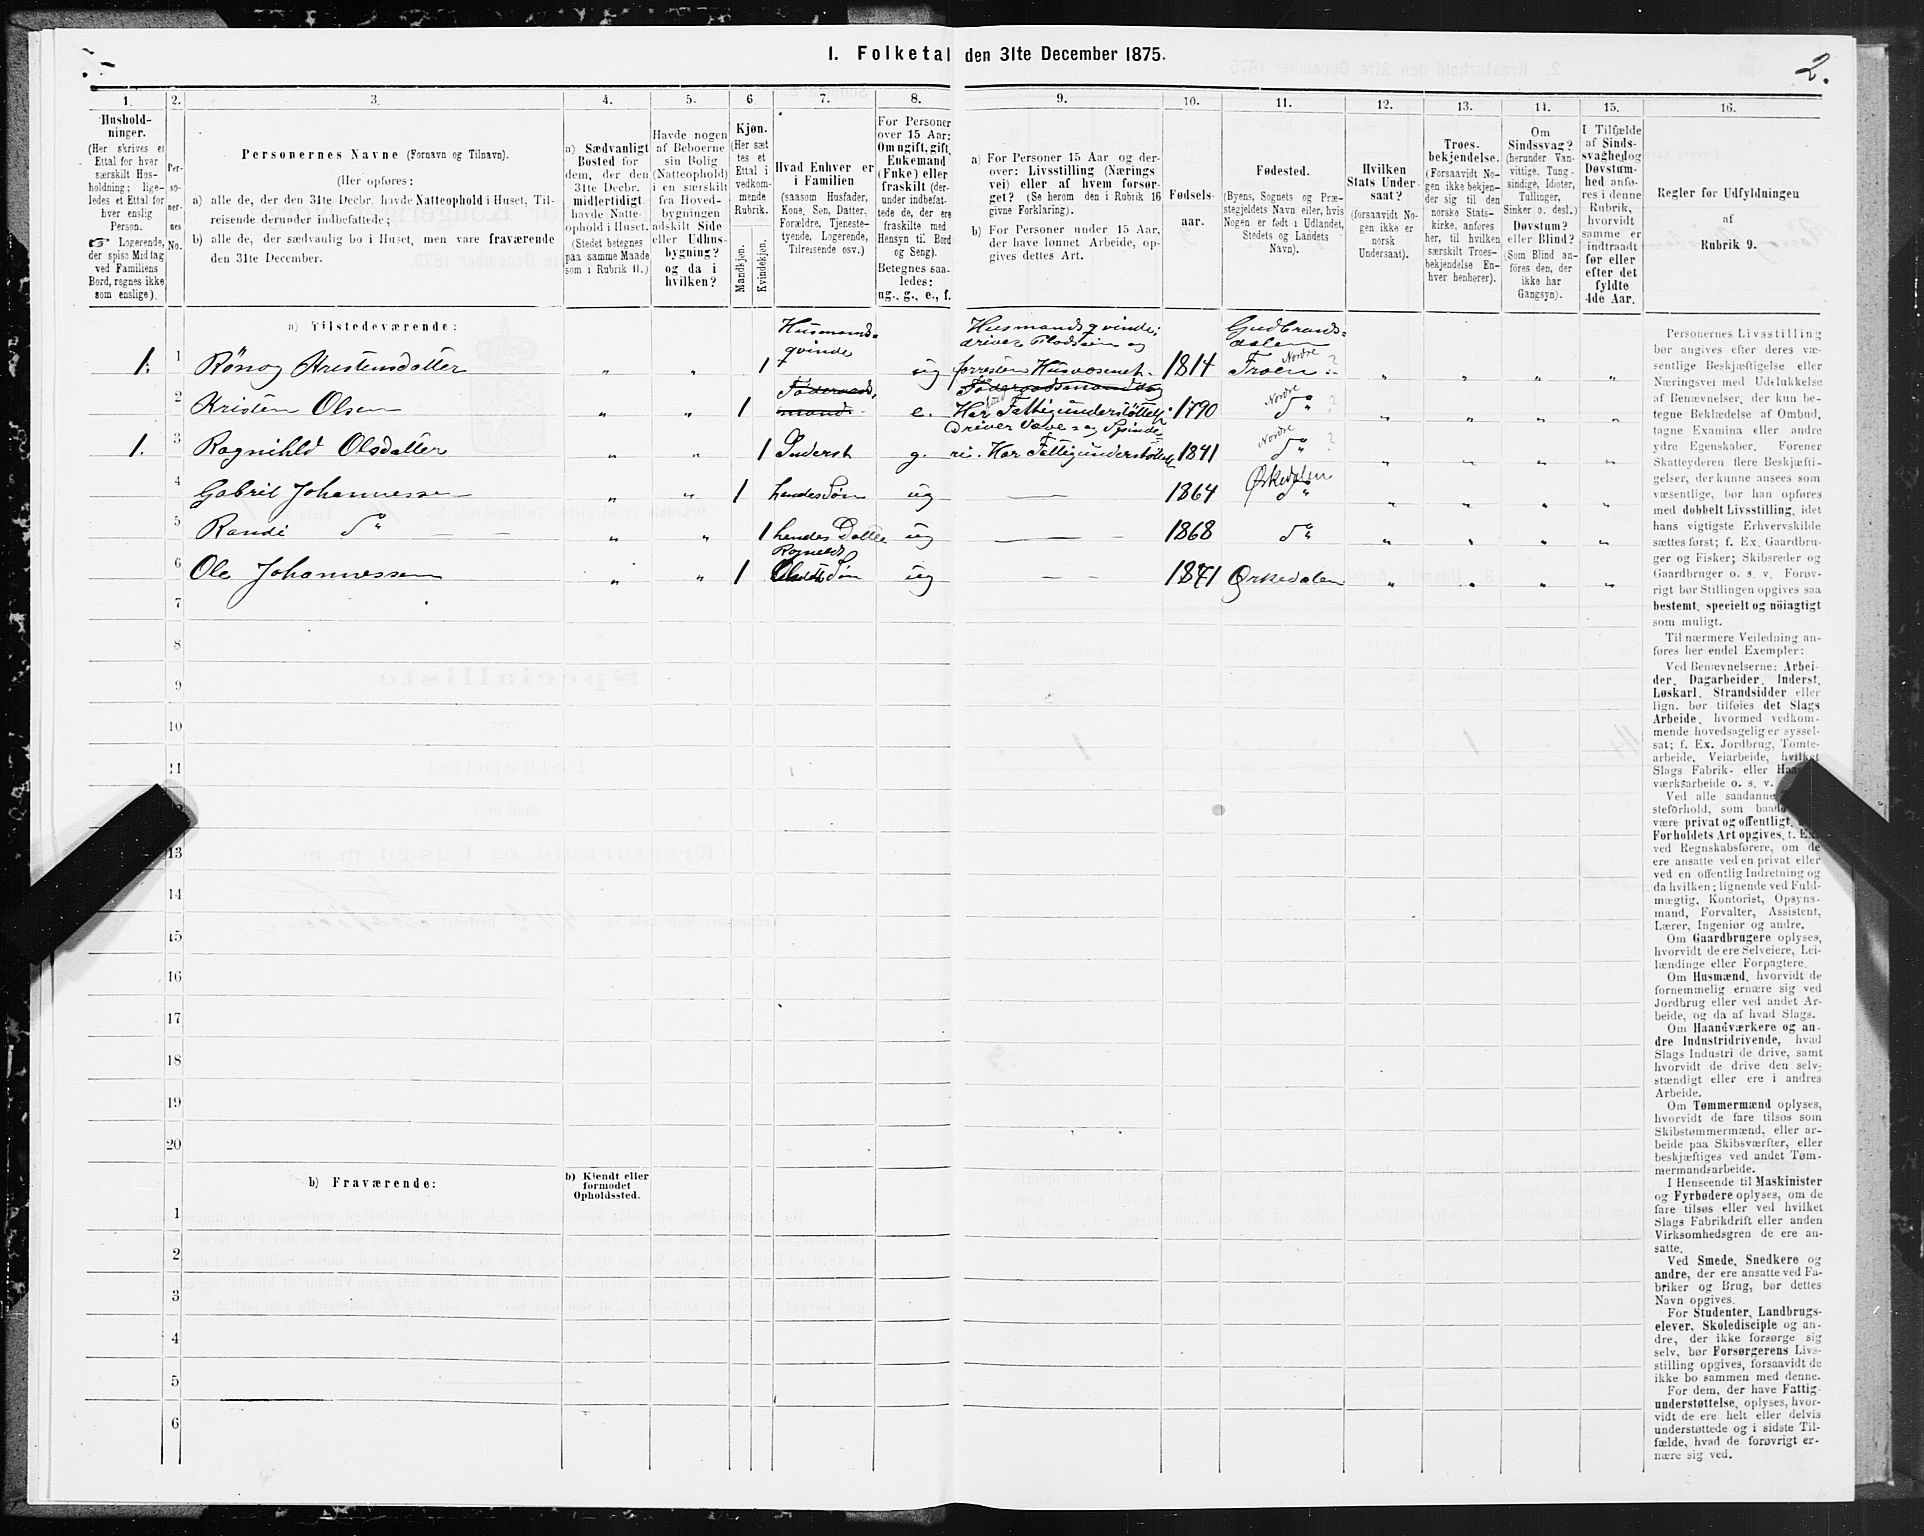 1. Folketal den 31te December 1875.
2.
1.
Hushold-
ninger.
(Her skrives et
Ettal for hver
særskilt Hus-
holdning; lige-
ledes et Ettal for
hver enslig
Person.
Logerende,
der spise Middag
ved Familiens
Bord, regnes ikke
som enslige).
2.
Per-
so-
ner-
nes
No.
3.
Personernes Navne (Fornavn og Tilnavn).
(Her opføres:
a) alle de, der den 31te Decbr. havde Natteophold i Huset, Til-
reisende derunder indbefattede;
b) alle de, der sædvanlig bo i Huset, men vare fraværende
den 31te December.
4.
a) Sædvanligt
Bosted for
dem, der den
31te Decbr.
midlertidigt
havde Natte-
ophold i Huset.
(Stedet betegnes
paa samme Maade
som i Rubrik 11.)
5.
Havde nogen
af Beboerne
sin Bolig
(Natteophold)
i en særskilt
fra Hoved-
bygningen
adskilt Side
eller Udhus-
bygning?
og da i
hvilken?
6
Kjøn.
(Her sæt
tes et
Ettal i
vedkom-
mende
Rubrik.
Mandkjøn.
Kvindekjøn.
7.
Hvad Enhver er
i Familien
(saasom Husfader,
Kone, Søn, Datter,
Forældre, Tjeneste-
tyende, Logerende,
Tilreisende osv.)
8.
For Personer
over 15 Aar:
Om ugift, gift,
Enkemand
(Enke) eller
fraskilt (der-
under indbefat-
tede de, der ere
fraskilte med
Hensyn til Bord
og Seng).
Betegnes saa-
ledes:
ug., g., e., f.
9.
a) For Personer 15 Aar og der-
over: Livsstilling (Nærings
vei) eller af hvem forsør-
get? (Se herom den i Rubrik 16
givne Forklaring).
b) For Personer under 15 Aar,
der have lønnet Arbeide, op-
gives dettes Art.
10.
Fødsels-
aar.
11.
Fødested.
(Byens, Sognets og Præ-
stegjeldets Navn eller, hvis
Nogen er født i Udlandet,
Stedets og Landets
Navn).
12.
Hvilken
Stats Under-
saat?
(forsaavidt No-
gen ikke er
norsk
Undersaat).
13.
Troes-
bekjendelse.
(Forsaavidt No-
gen ikke bekjen-
der sig til den
norske Stats-
kirke, anføres
her, til hvilken
særskilt Troes-
bekjendelse En-
hver henhører).
14.
Om
Sindssvag?
(herunder Van-
vittige, Tung-
sindige, Idioter,
Tullinger,
Sinker o. desl.)
Døvstum?
eller Blind?
(Som Blind an-
føres den, der
ikke har
Gangsyn).
15.
I Tilfælde
af Sinds-
svaghed og
Døvstum-
hed anfø-
res i denne
Rubrik,
hvorvidt
samme er
indtraadt
før eller
efter det
fyldte
4de Aar.
16.
Regler for Udfyldningen
af
Rubrik 9.
a) Tilstedeværende:
1. 1 Rønog Kristensdatter " " 1 Husmands-
qvinde ug Husmandsqvinde;
driver Pladsen og
forresten Husvæsenet. 1814 Gudbrands-
dalen
Nordre
Froen ? " " " "
2 Kristen Olsen " " 1 Föderaads-
mand e. Föderaadsmand og
Har Fattigunderstøttelse 1790 Nordre
do ? " " " "
1. 3 Ragnihld Olsdatter " " 1 Inderst g. Driver Væve- og Spinde-
ri. Har Fattigunderstøttelse 1841 Nordre
do ? " " " "
4 Gabriel Johannessen " " 1 hendes Søn ug — 1864 Ørkedalen
do " " " "
5 Randi do " " 1 hendes Datter ug — 1868 do " " " "
6 Ole Johannessen " " 1 Ragnilds
Søn ug — 1871 Ørkedalen " " " "
7
8
9
10
11
13
14
15
16
17
18
19
20
b) Fraværende:
b) Kjendt eller
formodet
Opholdssted.
1
2
3
4
5
6
Personernes Livsstilling
bør angives efter deres væ-
sentlige Beskjæftigelse eller
Næringsvei med Udelukkelse
af Benævnelser, der kun be-
tegne Beklædelse af Ombud,
tagne Examina eller andre
ydre Egenskaber. Forener
Skatteyderen flere Beskjæfti-
gelser, der kunne ansees som
væsentlige, bør han opføres
med dobbelt Livsstilling, idet
hans vigtigste Erhvervskilde
sættes først; f. Ex. Gaardbru-
ger og Fisker; Skibsreder og
Gaardbruger o. s. v. Forøv-
rigt bør Stillingen opgives saa
bestemt, specielt og nöiagtigt
som muligt.
Til nærmere Veiledning an-
føres her endel Exempler:
Ved Benævnelserne: Arbei-
der, Dagarbeider, Inderst,
Løskarl, Strandsidder eller
lign. bør tilføies det Slags
Arbeide, hvormed vedkom-
mende hovedsagelig er syssel-
sat; f. Ex. Jordbrug, Tomte-
arbeide, Veiarbeide, hvilket
Slags Fabrik- eller Haand-
værksarbeide o. s. v.
Ved alle saadanne
steforhold, som baade
være privat og offentligt,
Forholdets Art opgives, t. Ex.
ved Regnskabsførere, om de
ere ansatte ved en privat eller
ved en offentlig Indretning og
da hvilken; lignende ved Fuld-
mægtig, Kontorist, Opsyns-
mand, Forvalter, Assistent,
Lærer, Ingeniør og andre.
Om Gaardbrugere oplyses,
hvorvidt de ere Selveiere, Lei-
lændinge eller Forpagtere.
Om Husmænd, hvorvidt de
fornemmelig ernære sig ved
Jordbrug eller ved andet Ar-
beide, og da af hvad Slags.
Om Haandværkere og an-
dre Industridrivende, hvad
Slags Industri de drive, samt
hvorvidt de drive den selv-
stændigt eller ere i andres
Arbeide.
Om Tømmermænd oplyses,
hvorvidt de fare tilsøs som
Skibstømmermænd, eller ar-
beide paa Skibsværfter, eller
beskjæftiges ved andet Tøm-
mermandsarbeide.
I Henseende til Maskinister
og Fyrbødere oplyses, om de
fare tilsøs eller ved hvilket
Slags Fabrikdrift eller anden
Virksomhedsgren de ere an-
satte.
Ved Smede, Snedkere og
andre, der ere ansatte ved Fa-
briker og Brug, bør dettes
Navn opgives.
For Studenter, Landbrugs-
elever, Skoledisciple og an-
dre, der ikke forsørge sig
selv, bør Forsørgerens Livs-
stilling opgives, forsaavidt de
ikke bo sammen med denne.
For dem, der have Fattig-
understøttelse, oplyses, hvor-
vidt de ere helt eller delvis
understøttede og i sidste Til-
fælde, hvad de forøvrigt er-
nære sig ved.